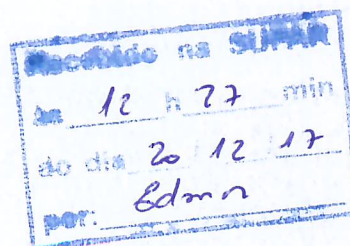 Recebido na SUPRAM
às 12 h 27 min
do dia 20 / 12 / 17
por: Edmar